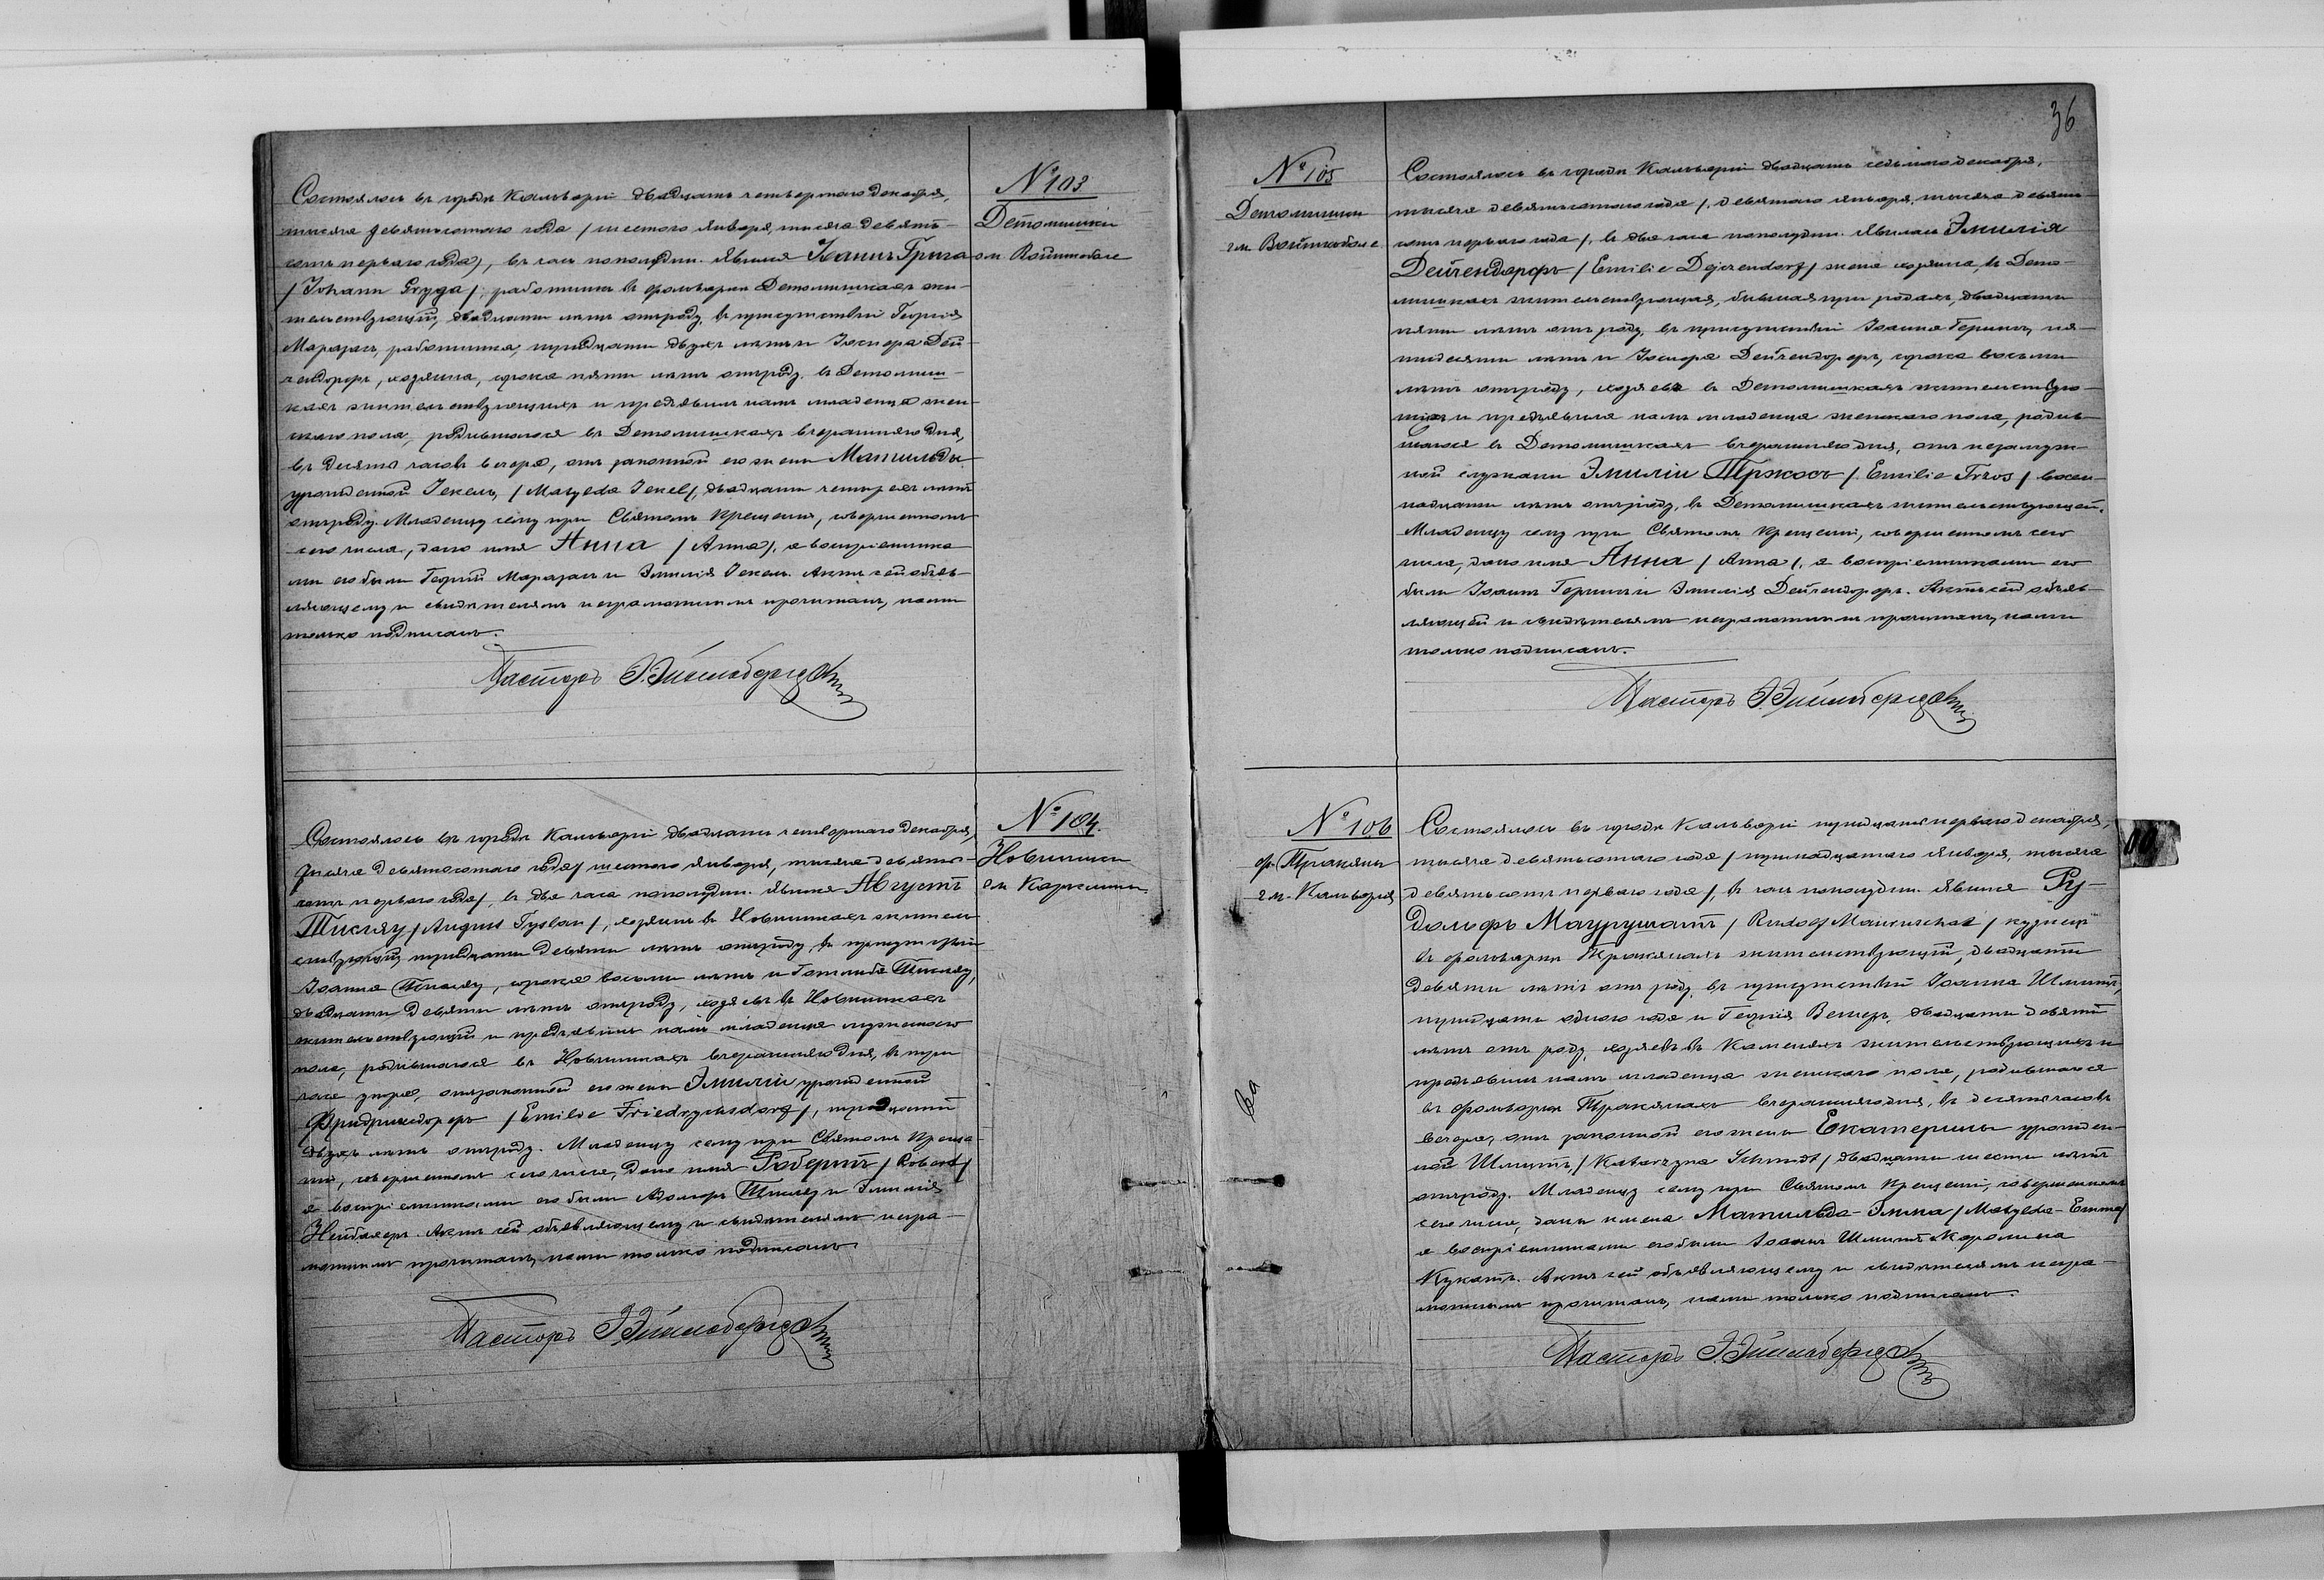 Состоялось въ городѣ Кальваріи двадцать четвертаго декабря,
тысяча девятьсотаго года /шестого января, тысяча девять-
сотъ перваго года/, въ часъ пополудни. Явился Іоаннъ Грига
/Johann Gryga/, работникъ въ фольваркѣ Детомишкахъ жи-
тельствующій, двадцати лѣтъ отъ роду, въ присутствіи Георгія
работника, тридцати двухъ лѣтъ и Дей-
чендорфъ, хозяина, сорока пяти лѣтъ отъ роду, въ Детомиш-
кахъ жительствующихъ и предъявилъ намъ младенца жен-
скаго пола, родившагося въ Детомишкахъ вчерашняго дня,
въ десять часовъ вечера, отъ законной его жены Матильды
урожденной Іекель, /Matylda Jekel/, двадцати четырехъ лѣтъ
отъ роду. Младенцу сему при Святомъ Крещеніи, совершенномъ
сего числа, дано имя Анна /Anna/, а воспріемника-
ми его были Георгій и Эмилія Іекель. Актъ сей объяв-
ляющему и свидѣтелямъ неграмотнымъ прочитанъ, нами
только подписанъ.
Пасторъ
№ 103
Детомишки
гм. Войткоболе
Состоялось въ городѣ Кальваріи двадцать четвертаго декабря,
тысяча девятьсотаго года /шестого января, тысяча девять-
сотъ перваго года/, въ два часа пополудни. Явился Августъ
Тислау /August Tyslau/, хозяинъ въ Новинкахъ житель-
ствующій, тридцати девяти лѣтъ отъ роду, въ присутствіи
Іоанна Тислау, сорока восьми лѣтъ и Готлиба Тислау,
двадцати девяти лѣтъ отъ роду, хозяевъ въ Новинкахъ
жительствующихъ и предъявилъ намъ младенца мужескаго
пола, родившагося въ Новинкахъ вчерашняго дня, въ три
часа утра, отъ законной его жены Эмиліи урожденной
Фридрихсдорфъ /Emilie Friedrychsdorf/, тридцати
двухъ лѣтъ отъ роду. Младенцу сему при Святомъ Креще-
ніи, совершенномъ сего числа, дано имя Робертъ /Robert/
а воспріемниками его были Адольфъ Тислау и Эмилія
Нейбахеръ. Актъ сей объявляющему и свидѣтелямъ негра-
мотнымъ прочитанъ, нами только подписанъ.
Пасторъ
№ 104.
Новинки
гм.
36
№ 105
Детомишки
гм. Войткоболе
Состоялось въ городѣ Кальваріи двадцать седьмого декабря,
тысяча девятьсотаго года /девятаго января, тысяча девять-
сотъ перваго года/, въ два часа пополудни. Явилась Эмилія
Дейчендорфъ /Emilie Dejczendorf/ жена хозяина, въ Дето-
мишкахъ жительствующая, бывшая при родахъ, двадцати
пяти лѣтъ отъ роду, въ присутствіи Іоанна пя-
тидесяти лѣтъ и Дейчендорфъ, сорока восьми
лѣтъ отъ роду, хозяевъ въ Детомишкахъ жительствую-
щихъ и предъявила намъ младенца женскаго пола, родив-
шагося въ Детомишкахъ вчерашняго дня, отъ незамуж-
ной служанки Эмиліи Тржосъ /Emilie Trzos/ восем-
надцати лѣтъ отъ роду, въ Детомишкахъ жительствующей.
Младенцу сему при Святомъ Крещеніи, совершенномъ сего
числа, дано имя Анна /Anna/, а воспріемниками его
были Іоаннъ и Эмилія Дейчендорфъ. Актъ сей объяв-
ляющей и свидѣтелямъ неграмотнымъ прочитанъ, нами
только подписанъ.
Пасторъ
№ 106
ф. Тракяны
гм. Кальварія
Состоялось въ городѣ Кальваріи тридцать перваго декабря,
тысяча девятьсотаго года /тринадцатаго января, тысяча
девятьсотъ перваго года/, въ часъ пополудни. Явился Ру-
дольфъ Маурушатъ /Rudolf Mauruschat/ кузнецъ
въ фольваркѣ Тракянахъ жительствующій, двадцати
девяти лѣтъ отъ роду, въ присутствіи Іоанна Шмитъ,
тридцати одного года и Георгія двадцати девяти
лѣтъ отъ роду, хозяевъ въ жительствующихъ и
предъявилъ намъ младенца женскаго пола, родившагося
въ фольваркѣ Тракянахъ вчерашняго дня, въ десять часовъ
вечера, отъ законной его жены Екатерины урожден-
ной Шмитъ, /Katarzyna Schmidt/ двадцати шести лѣтъ
отъ роду. Младенцу сему при Святомъ Крещеніи, совершенномъ
сего числа, даны имена Матильда-Эмма /Matylda-Emma/
а воспріемниками его были Іоаннъ Шмитъ и Каролина
Кукатъ. Актъ сей объявляющему и свидѣтелямъ негра-
мотнымъ прочитанъ, нами только подписанъ.
Пасторъ